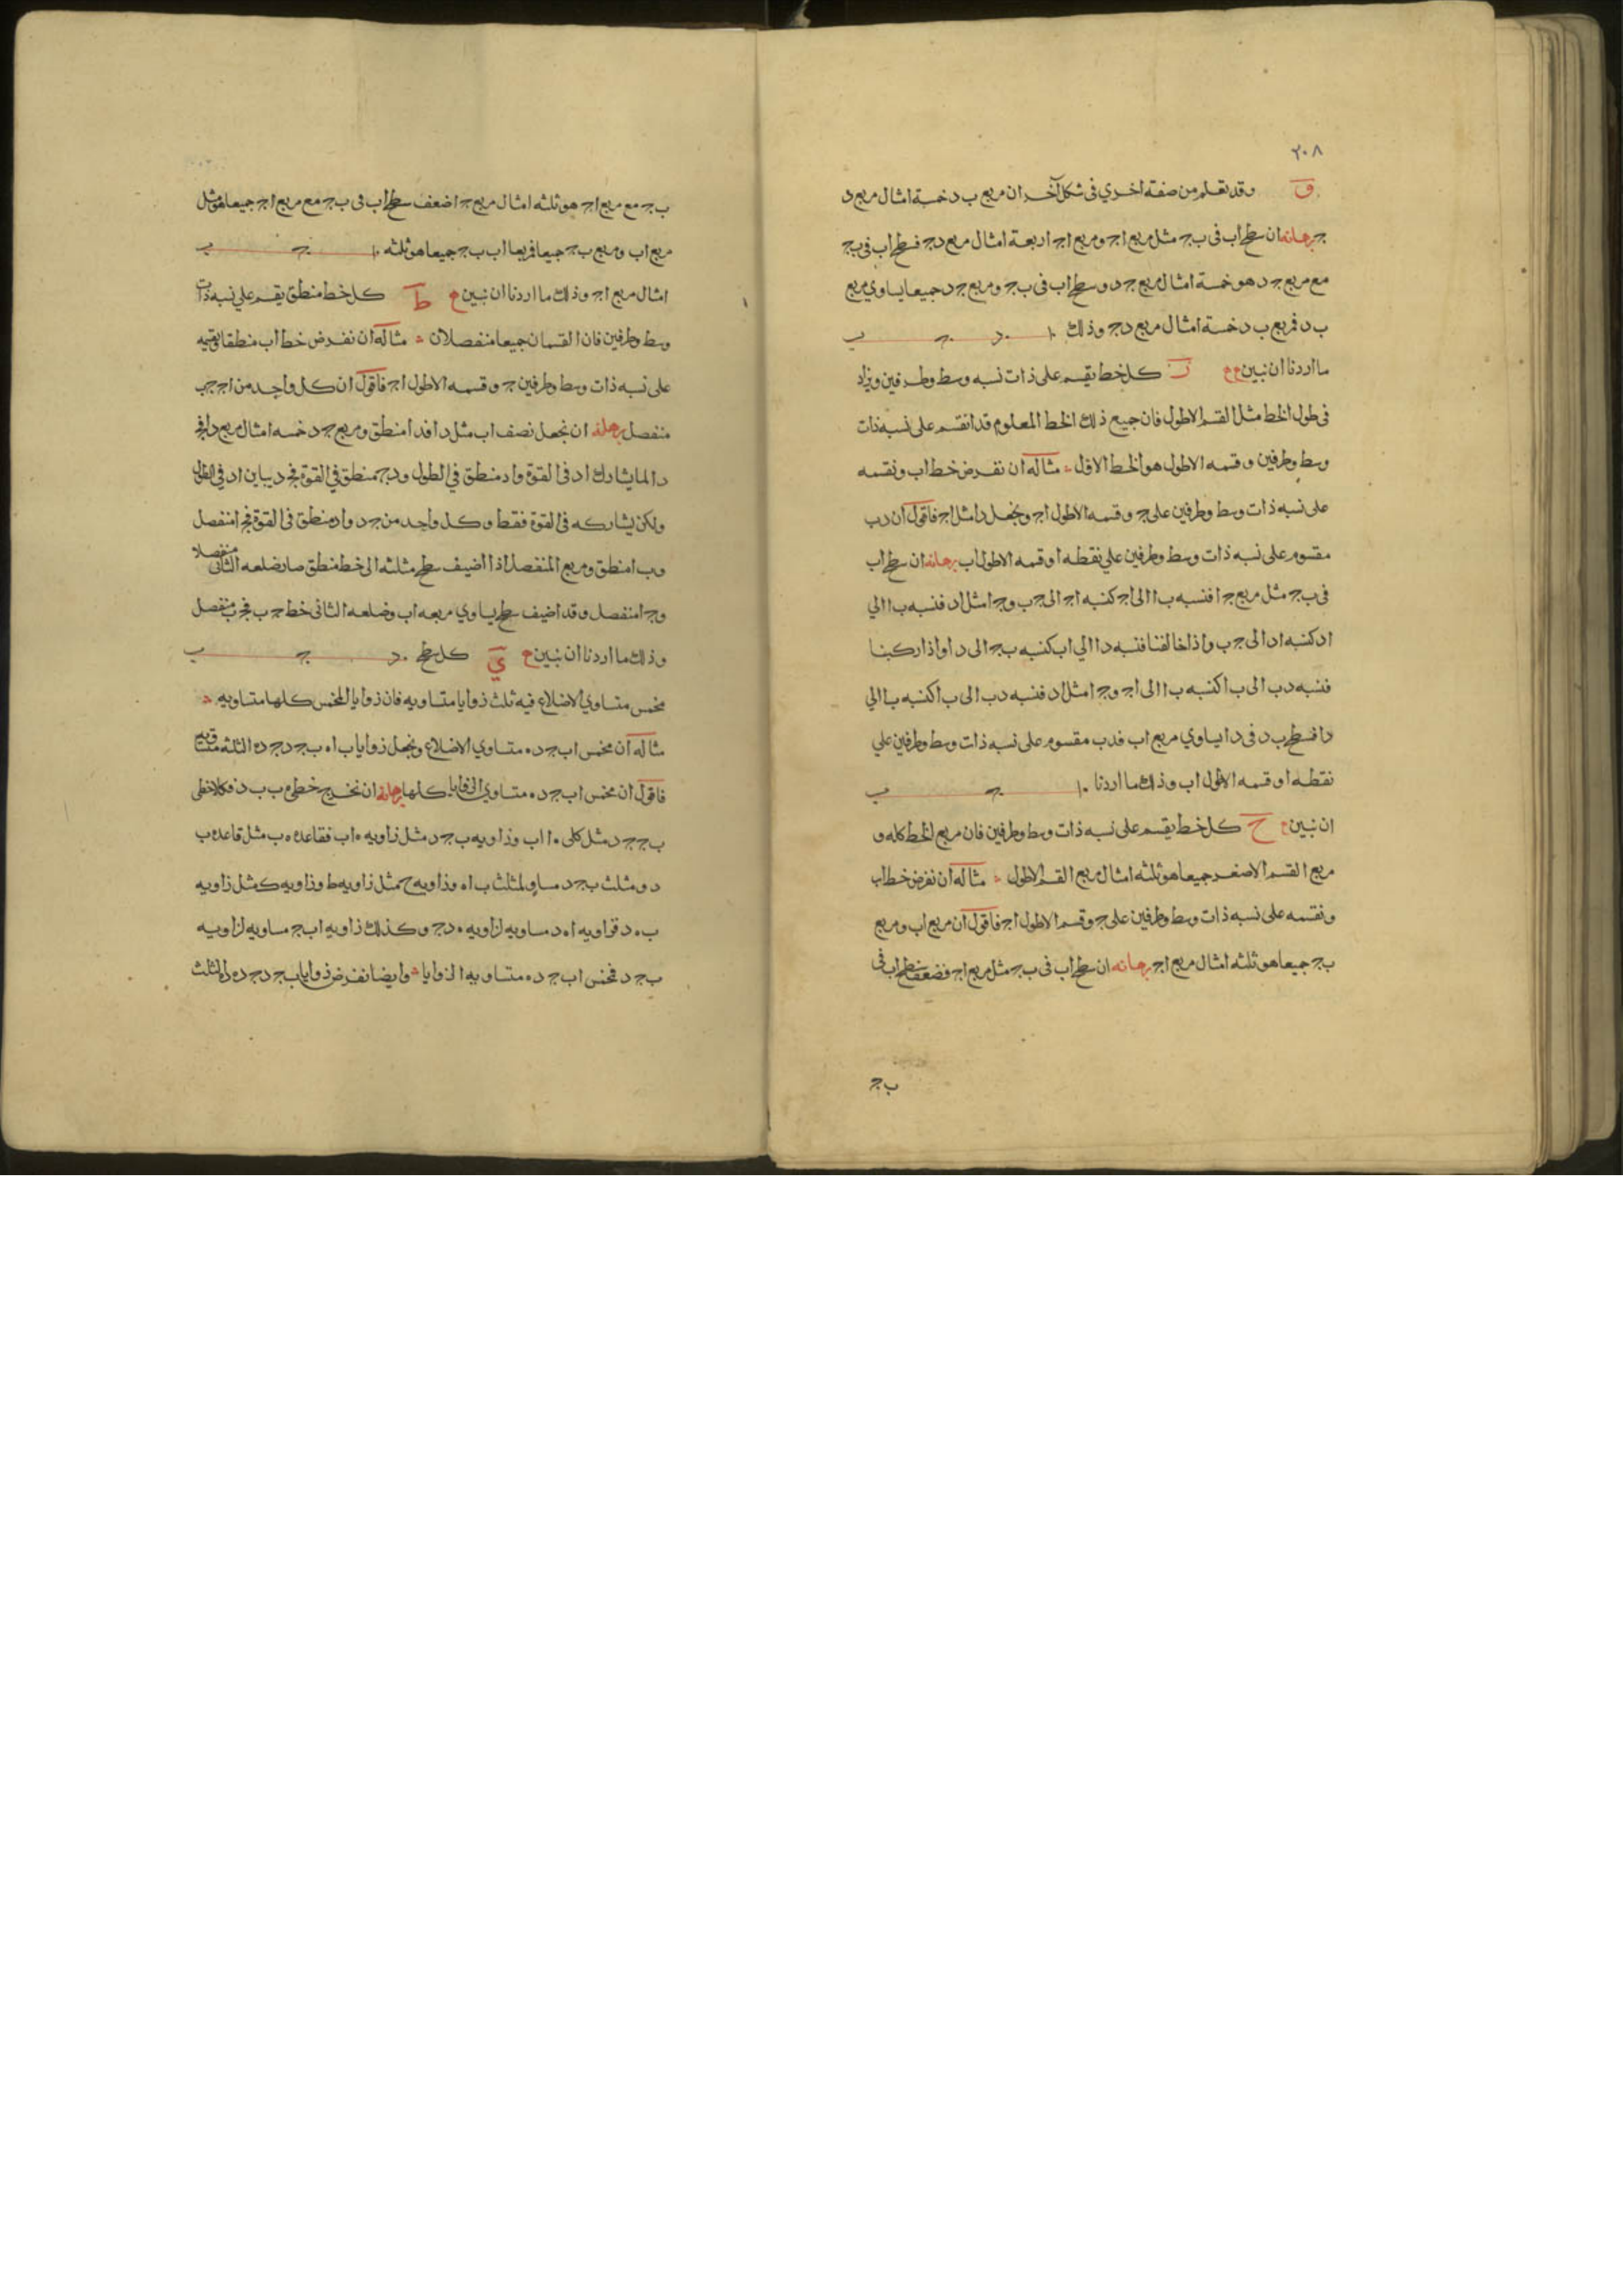 ٢٠٨
و وقد تعلم من صفة اخري في شكل آخر ان مربع ب د خمسة امثال مربع د
ج برهانه ان سطح اب في ب ج مثل مربع اج ومربع اج اربعة امثال مربع دج فسطح اب في ب ج
مع مربع ج د هو خمسة امثال مربع ج د وسطح اب في ب ج ومربع ج د جميعا يساوي مربع
ب د فمربع ب د خمسة امثال مربع دج وذلك ا د ج ب
ما اردنا ان نبين ز كل خط يقسم على ذات نسبه وسط وطرفين ويزاد
في طول الخط مثل القسم الاطول فان جميع ذلك الخط المعلوم قد انقسم على نسبه ذات
وسط وطرفين وقسمه الاطول هو الخط الاول مثاله ان نفرض خط اب ونقسمه
على نسبه ذات وسط وطرفين على ج وقسمه الاطول اج ونجعل دا مثل اج فاقول ان دب
مقسوم على نسبه ذات وسط وطرفين علي نقطه ا وقسمه الاطول اب برهانه ان سطح اب
في ب ج مثل مربع ج ا فنسبه ب ا الى اج كنسبه اج الى ج ب وج ا مثل اد فنسبه ب ا الي
اد كنسبه اد الى ج ب واذا خالفنا فنسبه دا الي اب كنسبه ب ج الى د ا واذا ركبنا
فنسبه دب الى ب ا كنسبه ب ا الى اج وج ا مثل اد فنسبه دب الى ب ا كنسبه ب ا الي
دا فسطح ب د في دا يساوي مربع اب فدب مقسوم على نسبه ذات وسط وطرفين علي
نقطه ا وقسمه الاطول اب وذلك ما اردنا ا ج ب
ان نبين ح كل خط يقسم على نسبه ذات وسط وطرفين فان مربع الخط كله و
مربع القسم الاصغر جميعا هو ثلثه امثال مربع القسم الاطول مثاله ان نفرض خط اب
ونقسمه على نسبه ذات وسط وطرفين على ج وقسمه الاطول اج فاقول ان مربع اب ومربع
ب ج جميعا هو ثلثه امثال مربع اج برهانه ان سطح اب في ب ج مثل مربع اج فضعف سطح اب في
ب ج
ب ج مع مربع اج هو ثلثه امثال مربع ج ا ضعف سطح اب في ب ج مع مربع اج جميعا هو مثل
مربع اب ومربع ب ج جميعا فمربعا اب ب ج جميعا هو ثلثه ا ج ب
امثال مربع اج وذلك ما اردنا ان نبين ط كل خط منطق يقسم علي نسبه ذات
وسط وطرفين فان القسمان جميعا منفصلان مثاله ان نفرض خط اب منطقا ونقسمه
على نسبه ذات وسط وطرفين ج وقسمه الاطول اج فاقول ان كل واحد من اج ج ب
منفصل برهانه ان نجعل نصف اب مثل دا فدا منطق ومربع ج د خمسه امثال مربع دا فج
د الما يشارك اد في القوة واد منطق في الطول ودج منطق في القوة فج د يباين اد في الطول
ولكن يشاركه في القوة فقط وكل واحد من ج د واد منطق في القوة فج ا منفصل
وب ا منطق ومربع المنفصل اذا اضيف سطح مثلثه الى خط منطق صار ضلعه الثاني منفصلا
وج ا منفصل وقد اضيف سطح يساوي مربعه اب وضلعه الثاني خط ج ب فج ب منفصل
وذلك ما اردنا ان نبين ي كل سطح د ج ب
مخمس متساوي الاضلاع فيه ثلث زوايا متساويه فان زوايا المخمس كلها متساويه
مثاله ان مخمس اب ج د ه متساوي الاضلاع ونجعل زوايا ب ا ه ب ج د ج د ه الثلثه متساويه
فاقول ان مخمس اب ج د ه متساوي الزوايا كلها برهانه ان نخرج خطي ه ب ب د فكلا خطي
ب ج ج د مثل كلى ه ا اب وزاويه ب ج د مثل زاويه ه اب فقاعده ه ب مثل قاعده ب
د ومثلث ب ج د مساو لمثلث ب ا ه وزاويه ح مثل زاويه ط وزاويه ك مثل زاويه
ب ه د فزاويه ا ه د مساويه لزاويه ه دج وكذلك زاويه اب ج مساويه لزاويه
ب ج د فمخمس اب ج د ه متساويه الزوايا وايضا نفرض زوايا ب ج د ج د ه الثلث